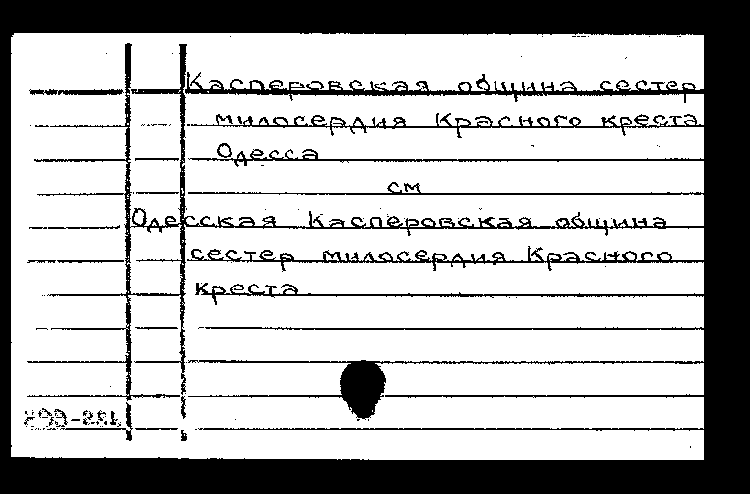 Касперовская община сестер
милосердия Красного креста
Одесса
см
Одесская Касперовская община
сестер милосердия Красного
креста